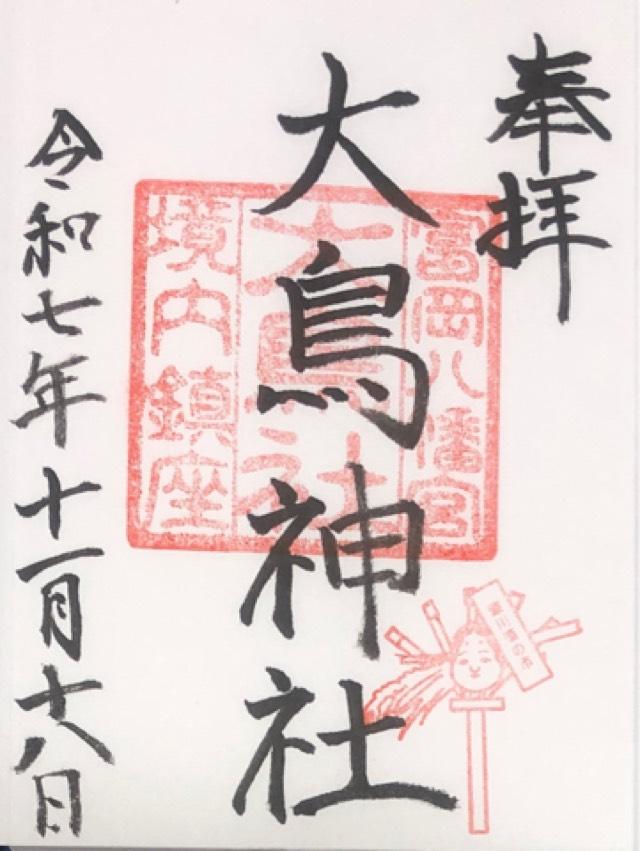 奉拝
富岡八幡宮
大鳥神社
大鳥社
境内鎮座
深川酉の市
令和七年十一月十八日